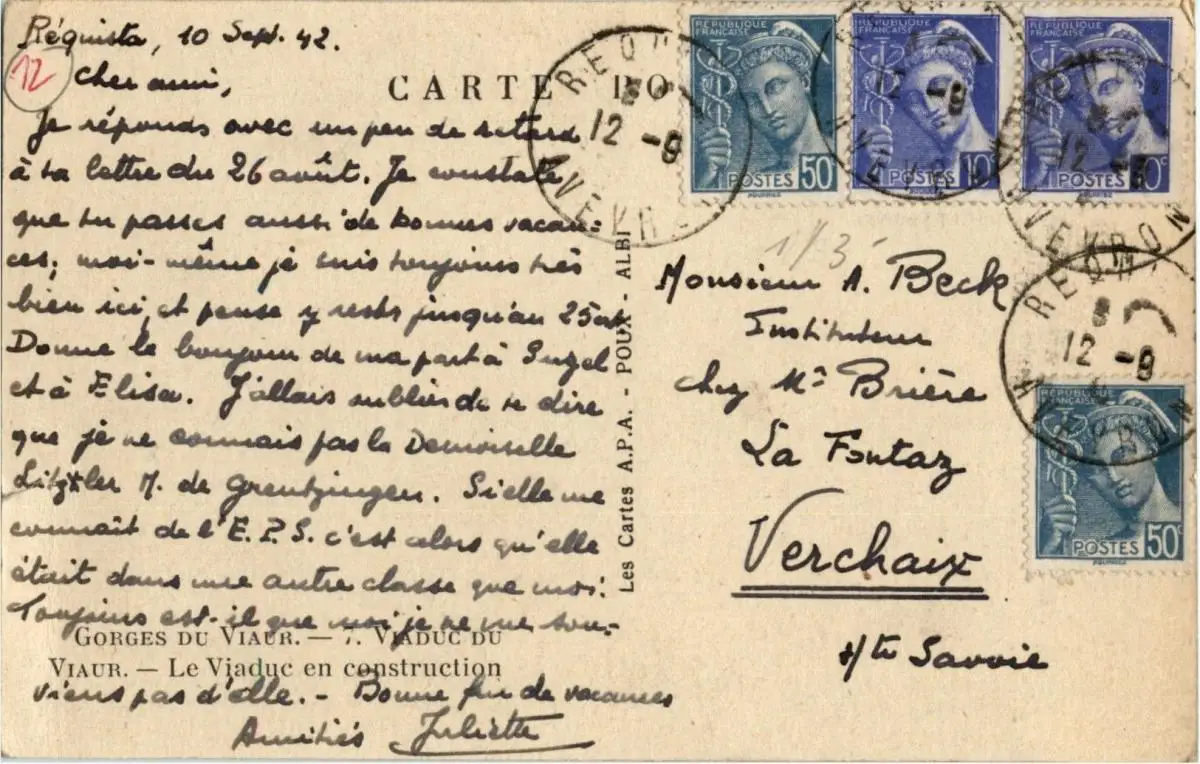 Réquista, 10 Sept. 42.
12
Cher ami,
Je réponds avec un peu de retard
à ta lettre du 26 août. Je constate
que tu passes aussi de bonnes vacan=
ces; moi-même je suis toujours très
bien ici, et pense y rester jusqu'au 25 ct
Donne le bonjour de ma part à Suzel
et à Elisa. J'allais oublier de te dire
que je ne connais pas la Demoiselle
Litzler M. de Grentzingen. Si elle me
connaît de l'E.P.S. c'est alors qu'elle
était dans une autre classe que moi.
Toujours est-il que moi je ne me sou-
viens pas d'elle. - Bonne fin de vacances
Amitiés Juliette
CARTE PO
GORGES DU VIAUR. — 7. VIADUC DU
VIAUR. — Le Viaduc en construction
Les Cartes A.P.A. - POUX - ALBI
1/3
Monsieur A. Beck
Instituteur
chez Mr Brière
La Fontaz
Verchaix
Hte Savoie
REPUBLIQUE
FRANÇAISE
POSTES 50c
REPUBLIQUE
FRANÇAISE
POSTES 10c
REPUBLIQUE
FRANÇAISE
POSTES 10c
REPUBLIQUE
FRANÇAISE
POSTES 50c
REQU
12 -9
AVEYRON
12 -9
AVEYRON
12 -9
AVEYRON
REQU
12 -9
AVEYRON